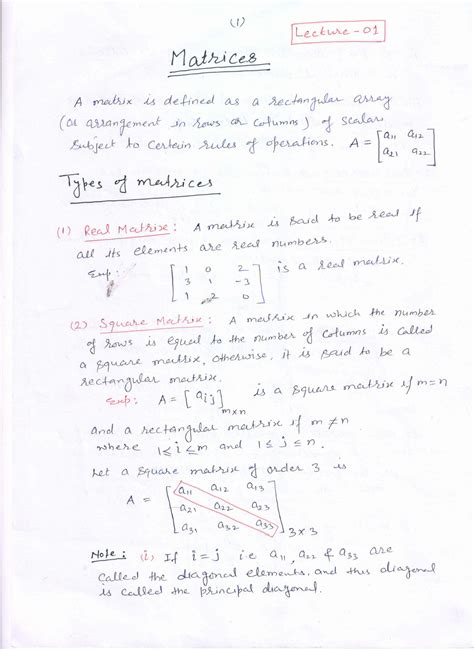 (1)
Lecture-01
Matrices
A matrix is defined as a rectangular array
(or arrangement in rows or columns) of scalars
subject to certain rules of operations. A = [a11 a12
a21 a22]
Types of matrices
(1) Real Matrix: A matrix is said to be real if
all its elements are real numbers.
Exp: [1 0 2
3 1 -3
1 -2 0] is a real matrix.
(2) Square Matrix: A matrix in which the number
of rows is equal to the number of columns is called
a square matrix, otherwise, it is said to be a
rectangular matrix.
Exp: A = [aij]m×n is a square matrix if m=n
and a rectangular matrix if m≠n
where 1≤i≤m and 1≤j≤n.
Let a square matrix of order 3 is
A = [a11 a12 a13
a21 a22 a23
a31 a32 a33]3×3
Note: (i) If i=j i.e a11, a22 & a33 are
called the diagonal elements, and this diagonal
is called the principal diagonal.